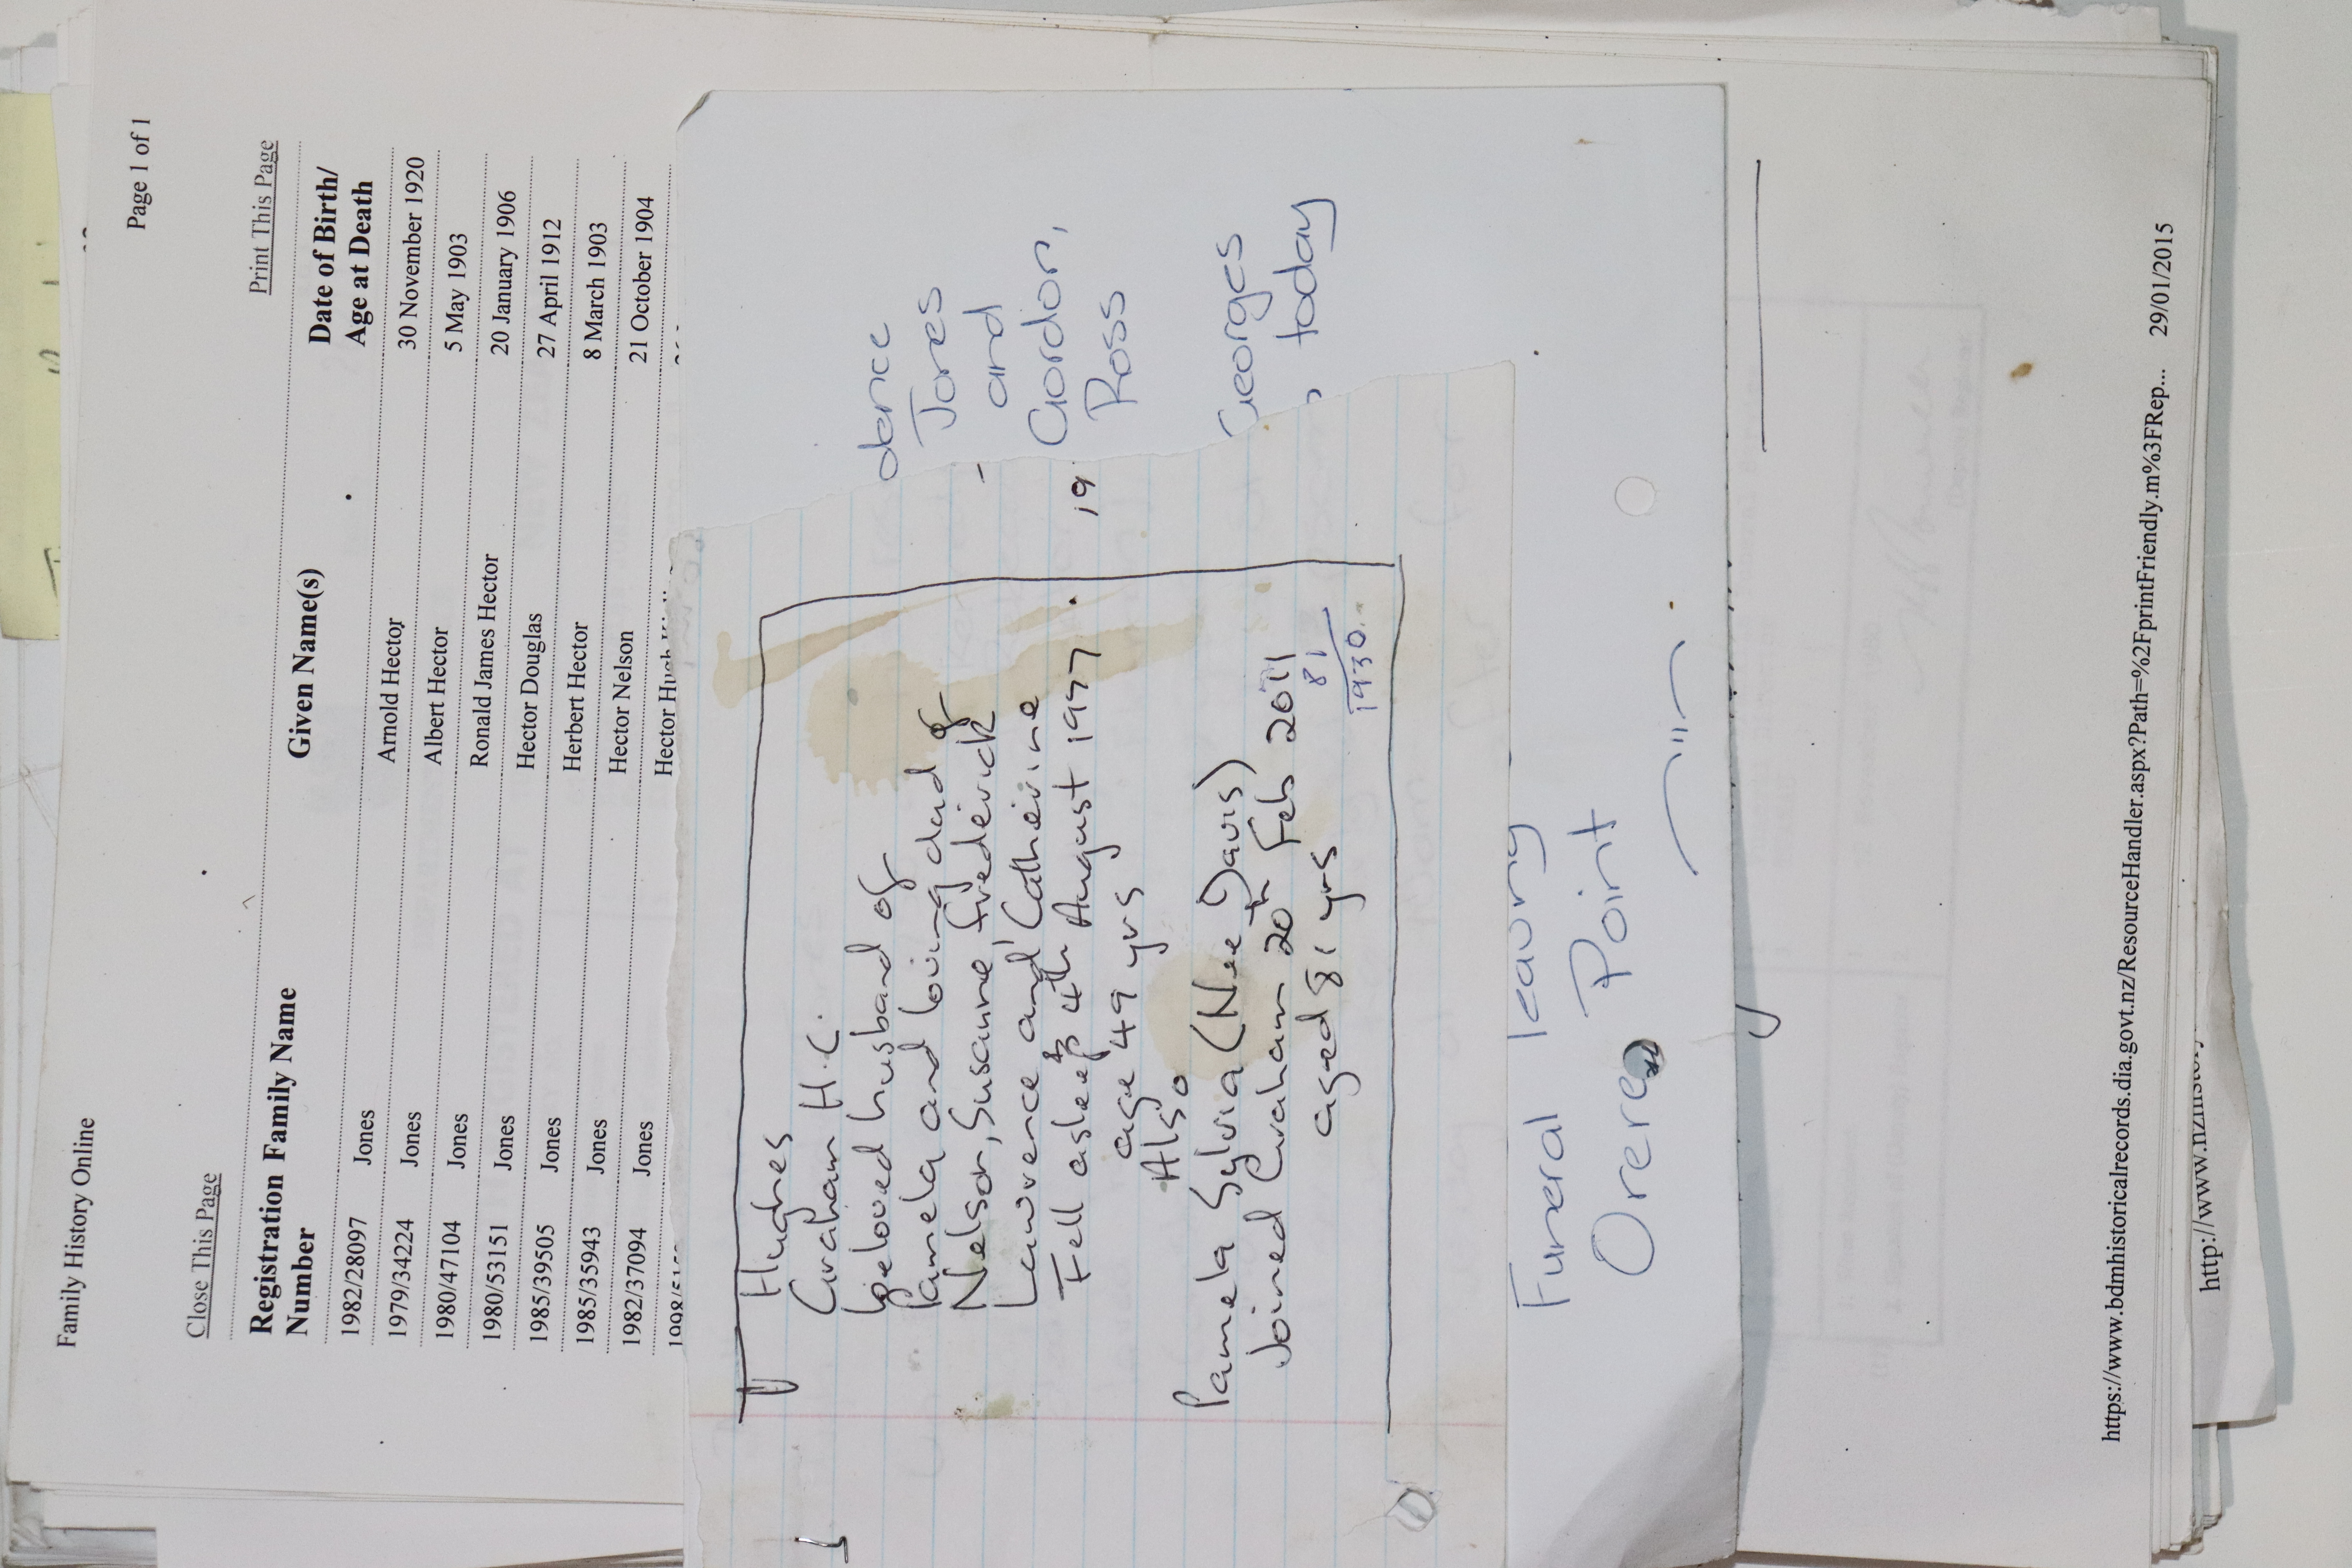 Family History Online
Page 1 of 1
Close This Page
Print This Page
Registration Number Family Name Given Name(s) Date of Birth/ Age at Death
1982/28097 Jones Arnold Hector 30 November 1920
1979/34224 Jones Albert Hector 5 May 1903
1980/47104 Jones Ronald James Hector 20 January 1906
1980/53151 Jones Hector Douglas 27 April 1912
1985/39505 Jones Herbert Hector 8 March 1903
1985/35943 Jones Hector Nelson 21 October 1904
1982/37094 Jones Hector Hugh
Hughes
Graham H.C.
beloved husband of
Pamela and loving dad of
Nelson, Susanne Frederick
Lawrence and Catherine
Fell asleep 4th August 1977
age 49 yrs
Also
Pamela Sylvia (Nee Davis)
Joined Graham 20th Feb 2011
aged 81 yrs
81
1930
19
dence
Jones
and
Gordon,
Ross
Georges
today
Funeral leaving
Orere Point
https://www.bdmhistoricalrecords.dia.govt.nz/ResourceHandler.aspx?Path=%2FprintFriendly.m%3FRep... 29/01/2015